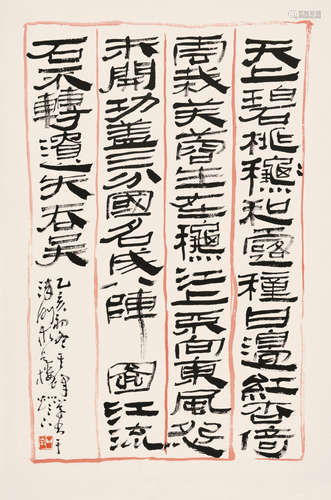 天上碧桃龝和露種日邊紅杏倚
雲栽芙蓉生在龝江上不向東風怨
未開功蓋三分國名成八陣圖江流
石不轉遺失吞吴
乙亥初冬
樓燈下